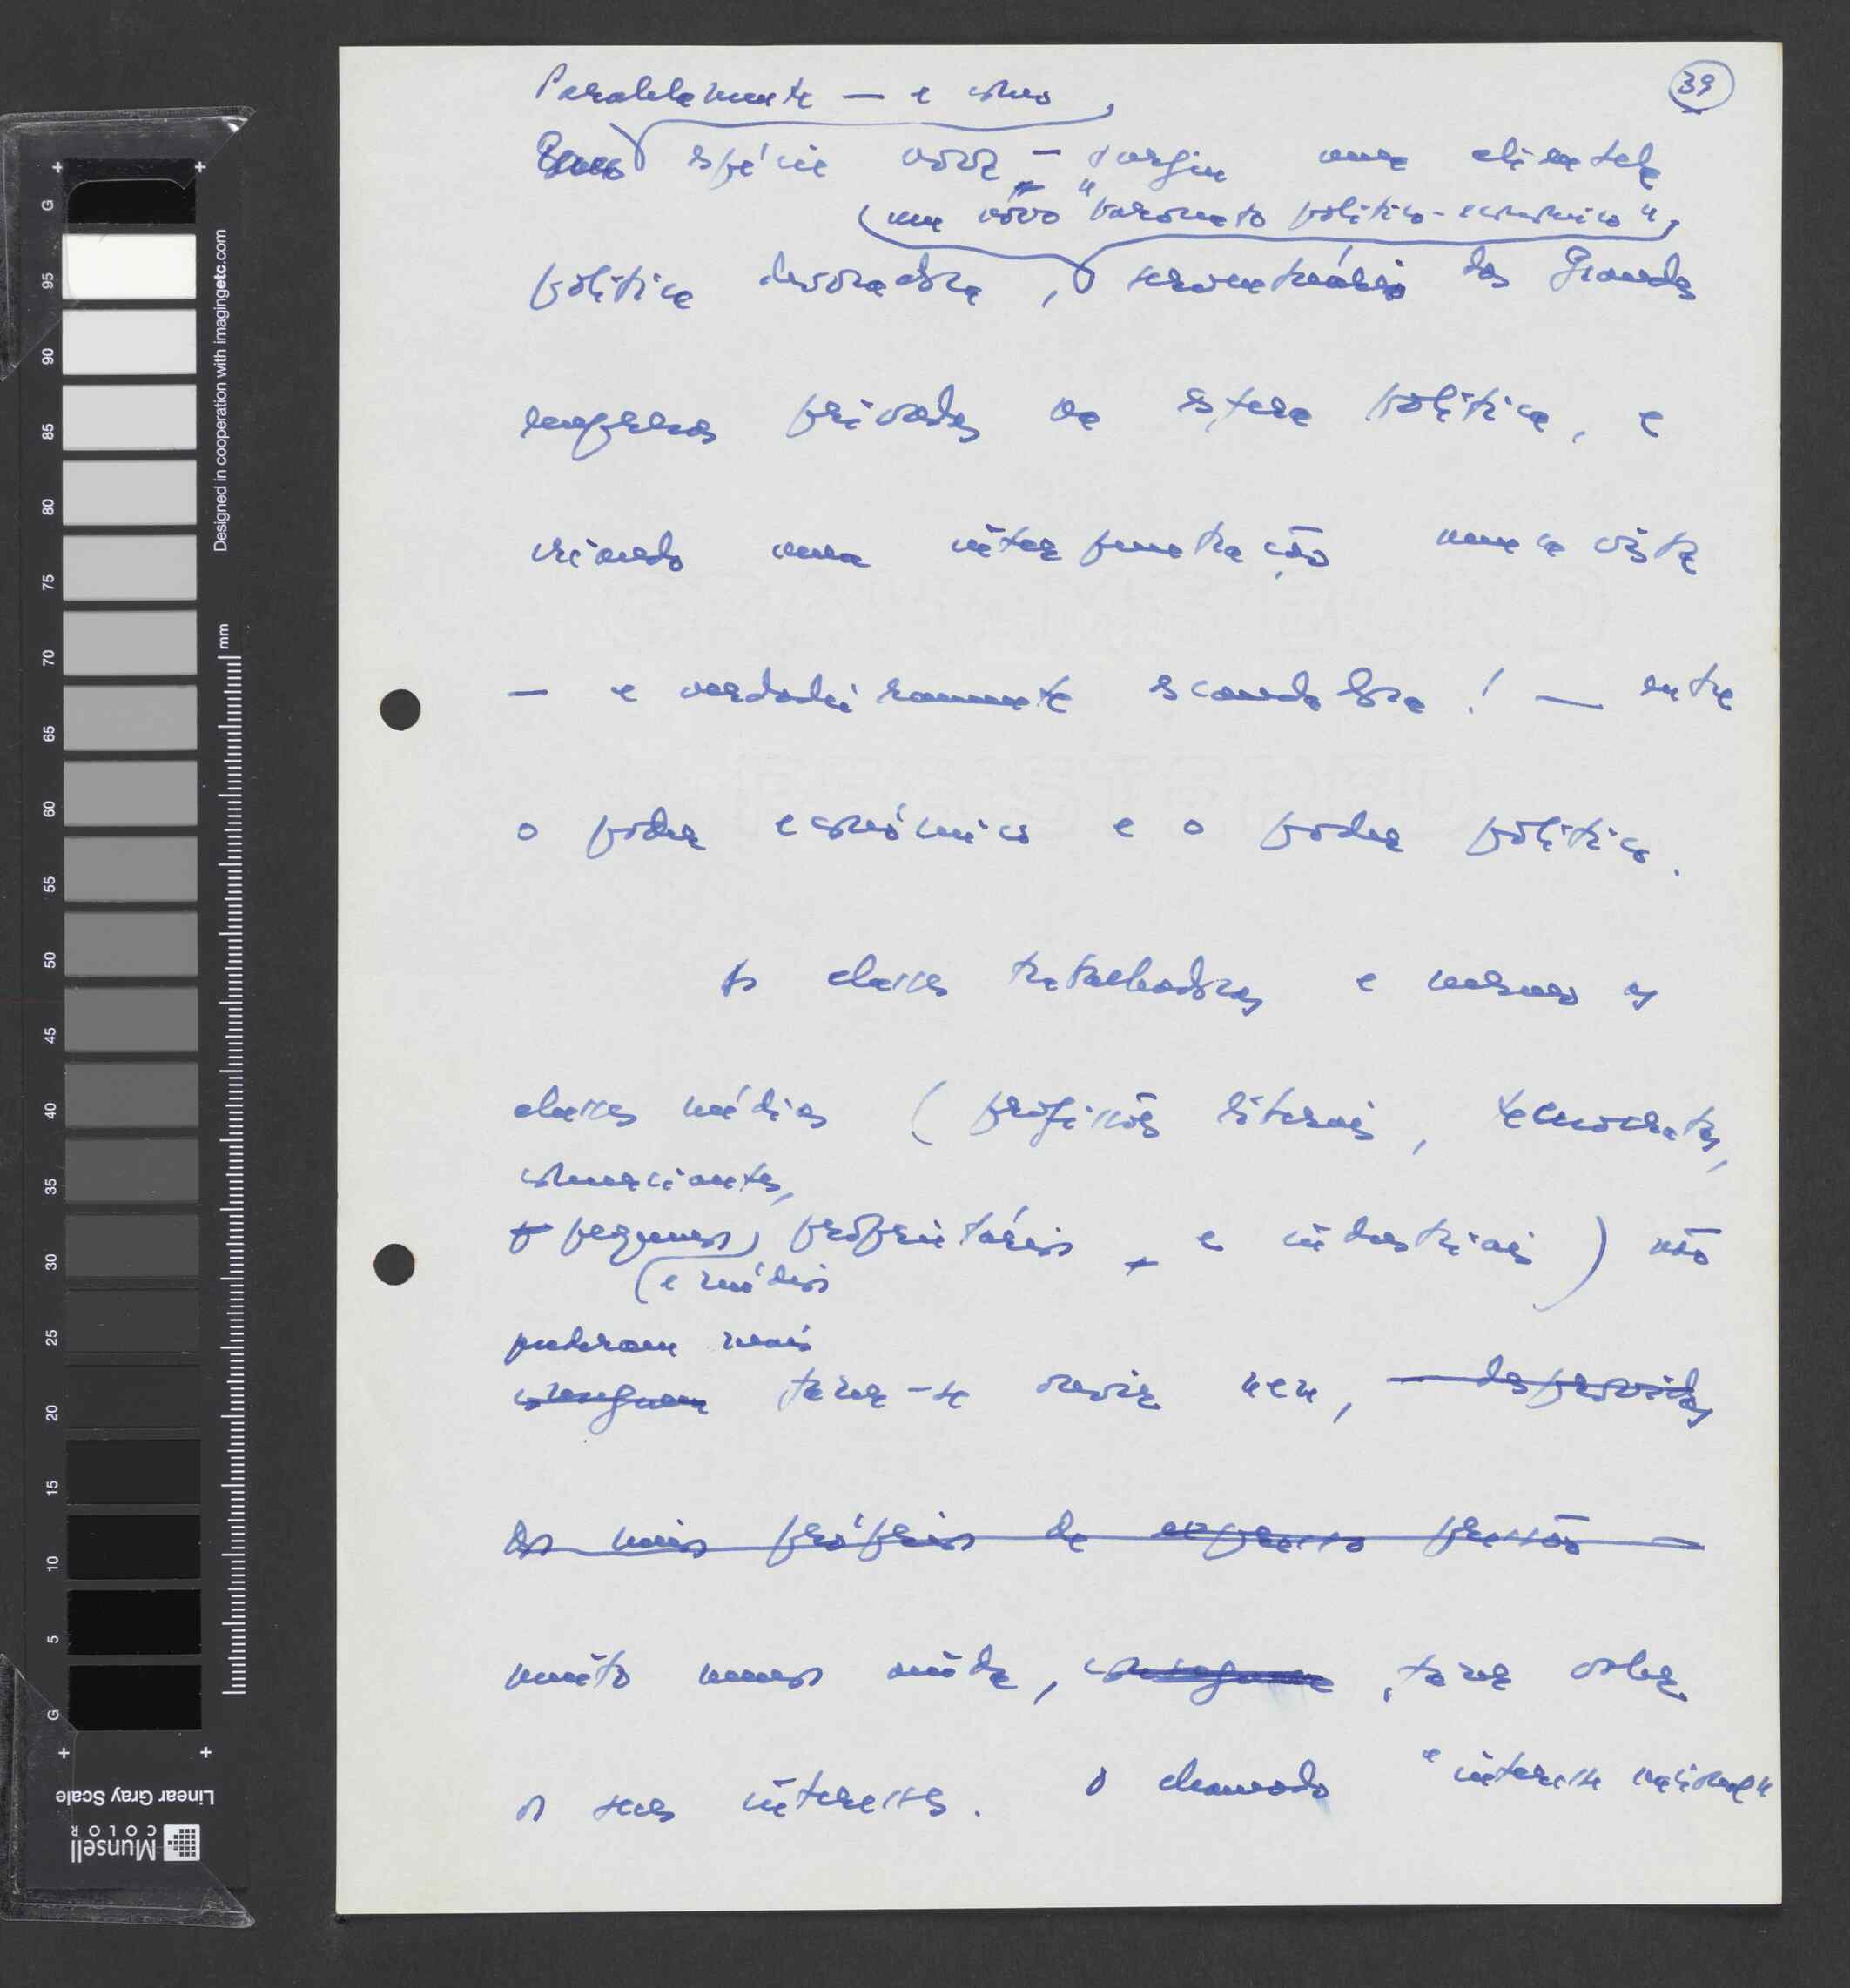 39
Paralelamente — e como
espécie nova — surgiu uma clientela
(um novo "baronato político-económico",
política devoradora, serventuários das Grandes
empresas privadas na esfera política, e
criando uma interpenetração nunca vista
— e verdadeiramente escandalosa! — entre
o poder económico e o poder político.
As classes trabalhadoras e mesmo as
classes médias (profissões liberais, tecnocratas,
comerciantes,
pequenos proprietários e industriais) não
(e médios
puderam mais
conseguem fazer-se ouvir nem, — desprovidas
dos meios próprios de expressão pressão —
muito menos ainda, conseguem fazer valer
os seus interesses. O chamado "interesse nacional"
G
95
90
85
80
75
70
65
60
55
50
45
40
35
30
25
20
15
10
5
G
mm
Designed in cooperation with imagingetc.com
Linear Gray Scale
Munsell
COLOR